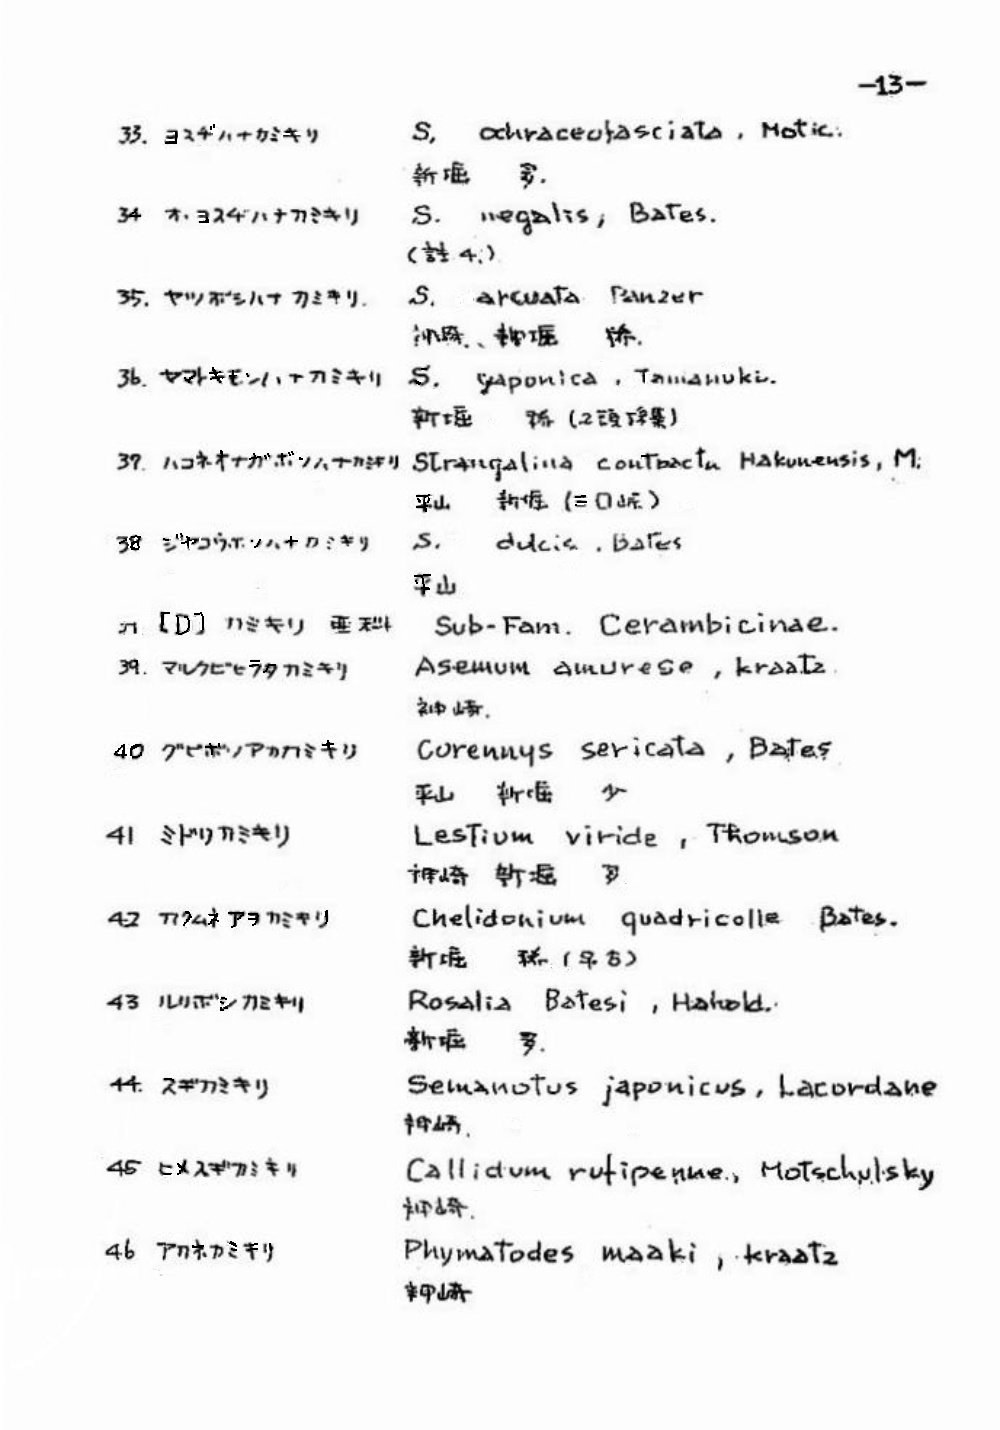 -13-
33. ヨスヂハナカミキリ S. ochraceofasciata, Motic.
新堀 多.
34 オ.ヨスヂハナカミキリ S. regalis, Bates.
(註4.)
35. ヤツボシハナカミキリ. S. arcuata Panzer
神崎、新堀 稀.
36. ヤマトキモンハナカミキリ S. yaponica, Tamanuki.
新堀 稀 (2頭採集)
37. ハコネオナガホソハナカミキリ Strangalina contracta Hakonensis, M.
平山 新堀 (三口峠)
38 ジヤコウホソハナカミキリ S. dulcis, Bates
平山
[D] カミキリ亜科 Sub-Fam. Cerambicinae.
39. マルクビヒラタカミキリ Asemum amurese, kraatz.
神崎.
40 クビボソアカカミキリ Corennys sericata, Bates
平山 新堀 少
41 ミドリカミキリ Lestium viride, Thomson
神崎 新堀 多
42 カクムネアヲカミキリ Chelidonium quadricolle Bates.
新堀 稀 (早古)
43 ルリボシカミキリ Rosalia Batesi, Harold.
新堀 多.
44. スギカミキリ Semanotus japonicus, Lacordane
神崎.
45 ヒメスギカミキリ Callidum rufipenne., Motschulsky
神崎.
46 アカネカミキリ Phymatodes maaki, kraatz
神崎